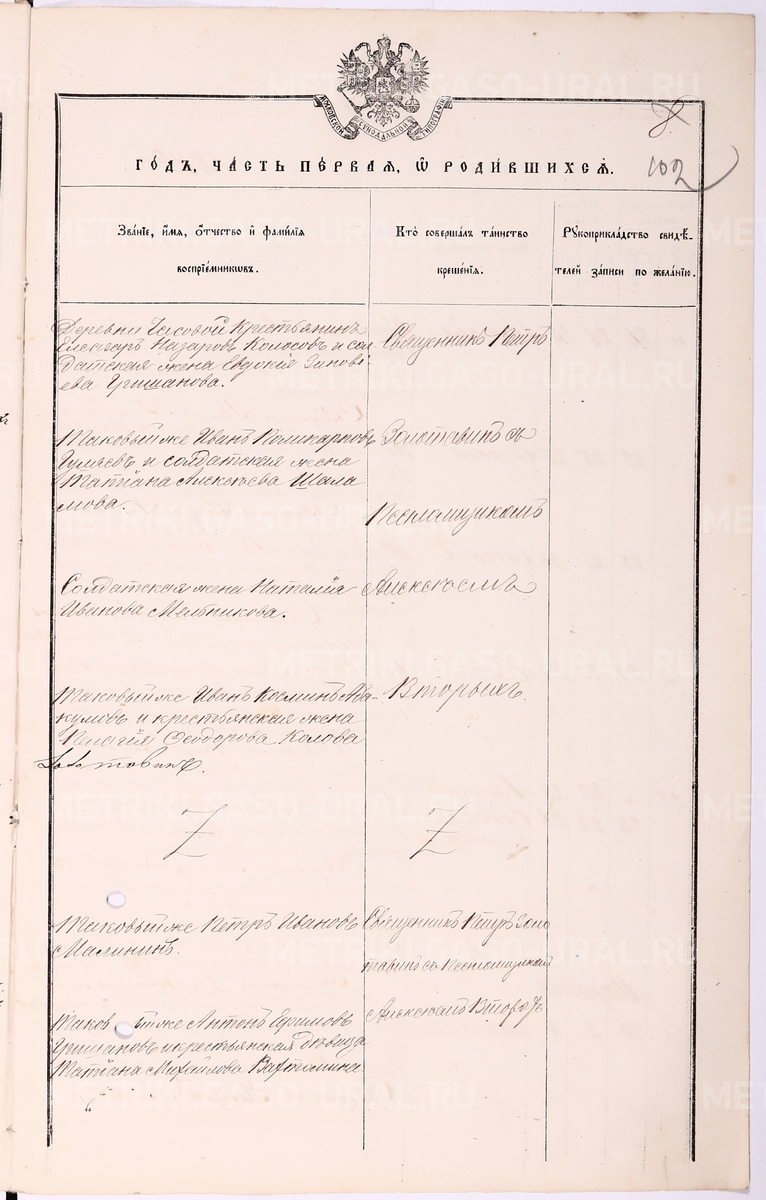 МОСКОВСКОЙ СУНОДАЛЬНОЙ ТИПОГРАФІИ
8.
102
ГОДЪ, ЧАСТЬ ПЕРВАЯ, Ѡ РОДИВШИХСЯ.
Званіе, имя, отчество и фамилія
воспріемниковъ.
Кто совершалъ таинство
крещенія.
Рукоприкладство свидѣ-
телей записи по желанію.
Деревни Часовой Крестьянинъ
Елеазаръ Назаровъ Колосовъ и сол
датская жена Евдокія Зинові-
ева Гришанова.
Священникъ Петръ
Таковый же Иванъ Поликарповъ
Гуляевъ и солдатская жена
Татіана Алексѣева Шала
мова.
Золотавинъ съ
Псаломщикомъ
Солдатская жена Наталія
Иванова Мельникова.
Алексѣемъ
Таковый же Иванъ Косминъ Аба-
кумовъ и крестьянская жена
Пелагія Ѳеодорова Колова
Вторыхъ.
Z
Z
Таковый же Петръ Ивановъ
Малининъ.
Священникъ Петръ Золо
тавинъ съ Псаломщикомъ
Таков ый же Антонъ Ефимовъ
Гришановъ и крестьянская дѣвица
Татіана Михайлова Вартолина
METRIKI.GASO-URAL.RU